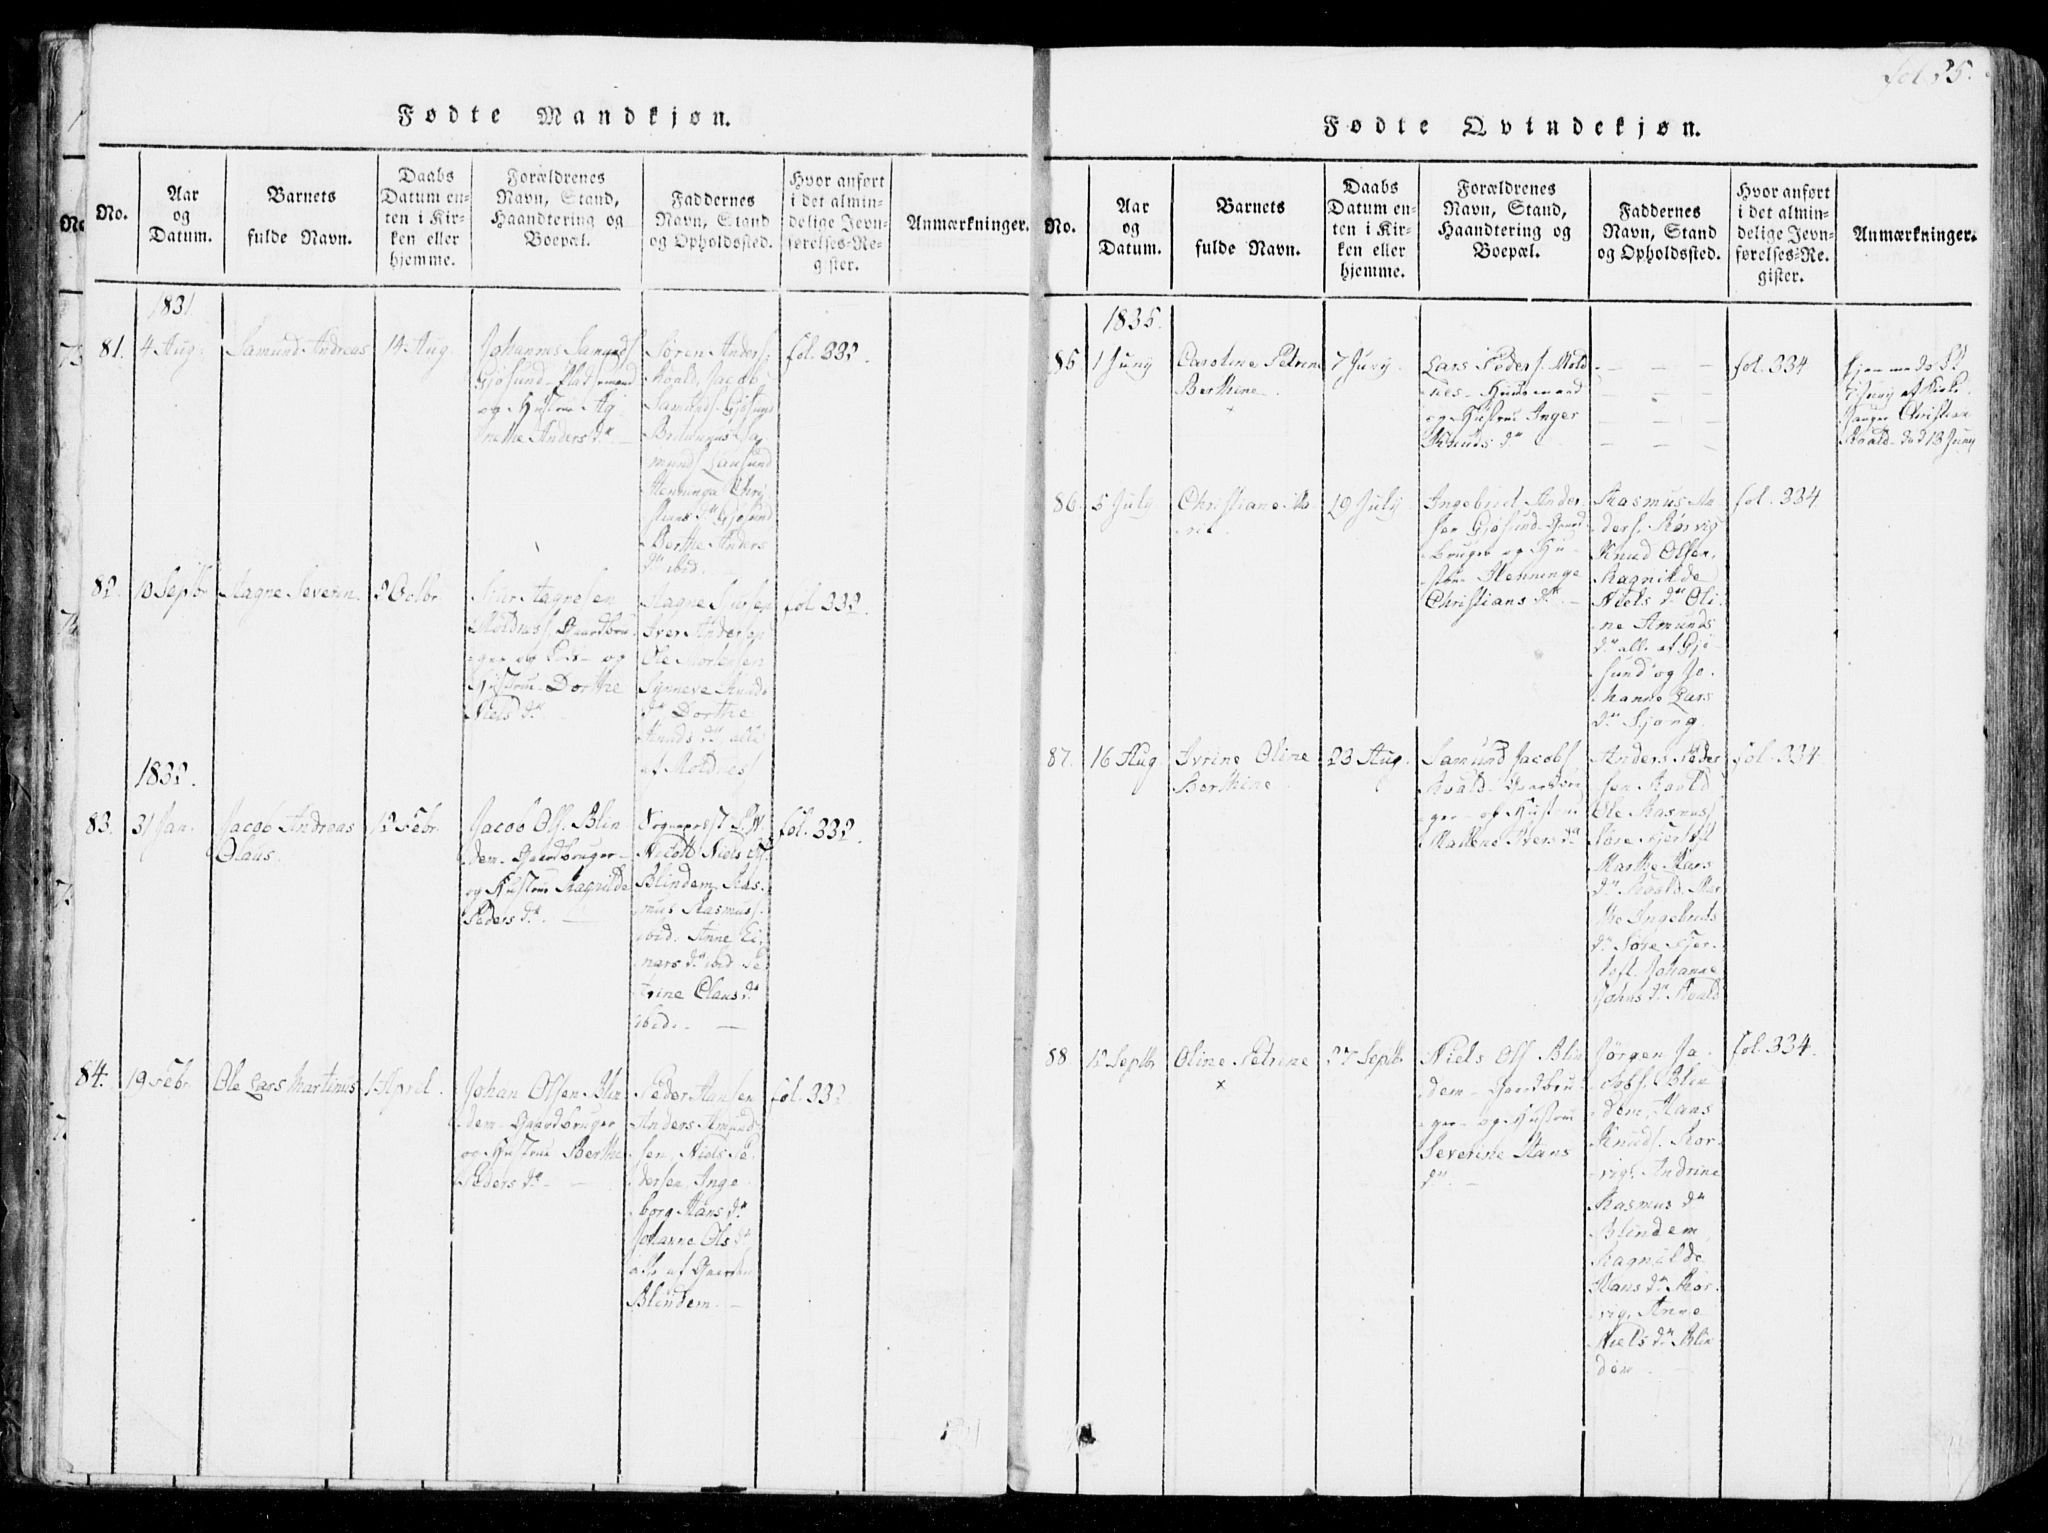 fol 35.
Fødte Mandkjøn.
No.
Aar
og
Datum.
Barnets
fulde Navn.
Daabs
Datum en-
ten i Kir-
ken eller
hjemme.
Forældrenes
Navn, Stand,
Haandtering og
Boepæl.
Faddernes
Navn, Stand
og Opholdssted.
Hvor anført
i det almin-
delige Jevn-
førelses-Re-
gister.
Anmærkninger.
1831
81.
4 Aug.
Samund Andreas
14 Aug.
Johannes Samunds.
Gjøsund
og Hustrue Ag-
nethe Anders dr
Søren Anders.
Roald, Jacob
Samunds. Gjøsund
munds.
Henninga Chri
stians dr Gjøsund
Berthe Anders
dr ibid.
fol. 332.
82.
10 Septbr
Aagne Severin
2 Octbr
Siur Aagnesen
Moldnes, Gaardbru-
ger og
og
Hustrue Dorthe
Niels dr
Aagne Siursen
Iver Andersen
Ole Mortensen
Synneve Knuds
dr Dorthe
Knuds dr alle
af Moldnes
fol. 332.
1832.
83.
31 Jan.
Jacob Andreas
Olaus
12 Febr.
Jacob Ols. Blin-
dem. Gaardbruger
og Hustrue Ragnilde
Peders dr.
Niels Ols.
Blindem, Ras-
mus Rasmuss.
ibid. Anne Ei-
nars dr ibid Pe-
trine Claus dr
ibid.
fol. 332.
84.
19 Febr.
Ole Lars Martinus
1 April.
Johan Olsen Blin
dem. Gaardbruger
og Hustrue Berthe
Peders dr
Peder Hansen
Anders Amund-
sen, Niels Pe-
dersen, Inge-
borg Hans dr
Johanne Ols dr
alle af Gaarden
Blindem.
fol. 332
Fødte Qvindekjøn.
No.
Aar
og
Datum.
Barnets
fulde Navn.
Daabs
Datum en-
ten i Kir-
ken eller
hjemme.
Forældrenes
Navn, Stand,
Haandtering og
Boepæl.
Faddernes
Navn, Stand
og Opholdssted.
Hvor anført
i det almin-
delige Jevn-
førelses-Re-
gister.
Anmærkninger.
1835.
85.
1 Juny
Caroline Petrine
Berthine
7 Juny.
Lars Peders. Mold-
nes - Huusmand
og Hustrue Inger
Knuds dr
fol. 334
hjemmedøbt
7 Juny af Kirke-
sanger Christian
Roald. død 13 Juny
86.
5 July
Christiane Ma-
rit
19 July
Ingebrict Ander
sen Gjøsund Gaard
bruger og Hu-
strue Henninge
Christians dr
Rasmus An-
ders. Rørvig
Knud Olsen,
Ragnilde
Niels dr Oli-
ne Amunds
dr alle af Gjø-
sund og Jo-
hanne Lars
dr Sjong
fol. 334
87.
16 Aug
Ivrine Oline
Berthine
23 Aug.
Samund Jacobs.
Roald. Gaardbru-
ger og Hustrue
Mallene Ivers dr
Anders Peder
sen Roald
Ole Rasmus.
Søre Fjertoft
Marthe Lars
dr Roald. Mar
the Ingebrits
dr Søre Fjer-
toft. Johanne
Johns dr Roald
fol. 334
88
12 Septbr
Oline Petrine
x
27 Septbr
Niels Ols. Blin
dem - Gaardbru-
ger - og Hustrue
Severine Hans
dr.
Jørgen Ja-
cobs. Blin
dem, Hans
Knuds. Rør-
vig. Andrine
Rasmus dr
Blindem,
Ragnilde
Hans dr Rør-
vig, Anne
Niels dr Blin
dem
fol. 334.